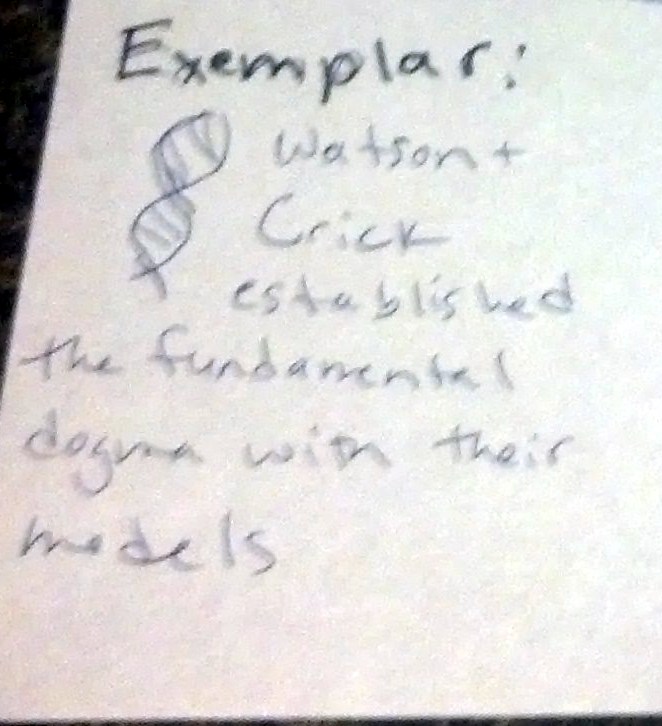 Exemplar:
Watson +
Crick
established
the fundamental
dogma with their
models